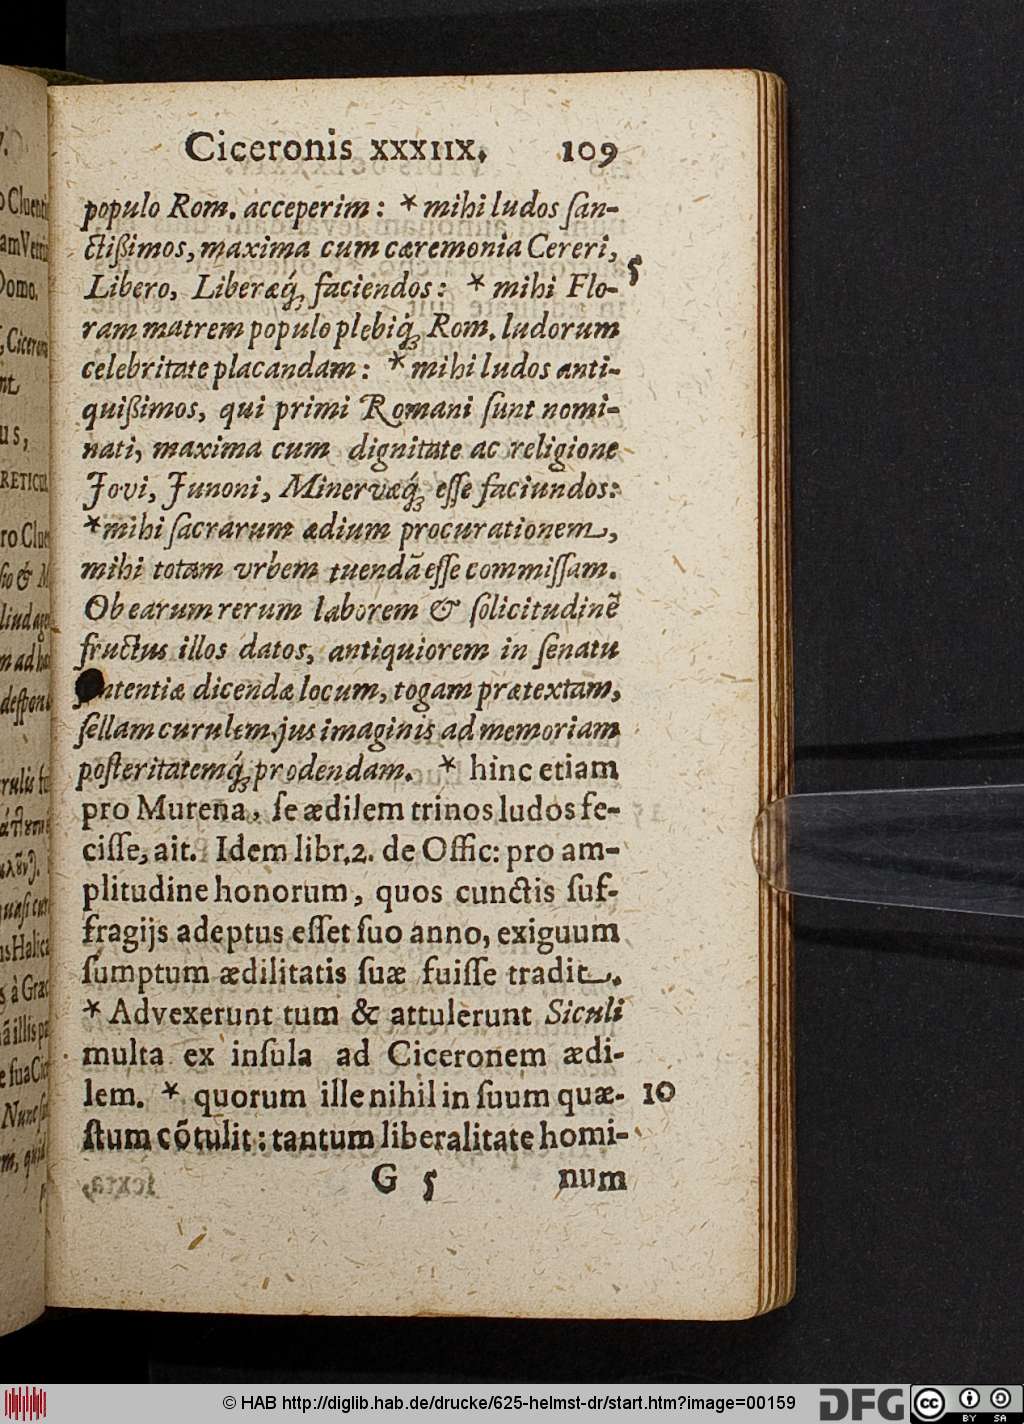 Ciceronis XXXIIX. 109
populo Rom. acceperim : * mihi ludos ſan-
ctißimos, maxima cum cæremonia Cereri,
5
Libero, Liberæq́ꝫ faciendos : * mihi Flo-
ram matrem populo plebiq́ꝫ Rom. ludorum
celebritate placandam : * mihi ludos anti-
quißimos, qui primi Romani ſunt nomi-
nati, maxima cum dignitate ac religione
Jovi, Junoni, Minervæq́ꝫ eſſe faciundos:
* mihi ſacrarum ædium procurationem,
mihi totam vrbem tuendã eſſe commiſſam.
Ob earum rerum laborem & ſolicitudinẽ
fructus illos datos, antiquiorem in ſenatu
ntentiæ dicendæ locum, togam prætextam,
ſellam curulem, jus imaginis ad memoriam
poſteritatemq́ꝫ prodendam. * hinc etiam
pro Murena, ſe ædilem trinos ludos fe-
ciſſe, ait. Idem libr. 2. de Offic: pro am-
plitudine honorum, quos cunctis ſuf-
fragijs adeptus eſſet ſuo anno, exiguum
ſumptum ædilitatis ſuæ fuiſſe tradit.
* Advexerunt tum & attulerunt Siculi
multa ex inſula ad Ciceronem ædi-
lem. * quorum ille nihil in ſuum quæ- 10
ſtum cõtulit : tantum liberalitate homi-
G 5 num
© HAB http://diglib.hab.de/drucke/625-helmst-dr/start.htm?image=00159
DFG
cc
BY SA